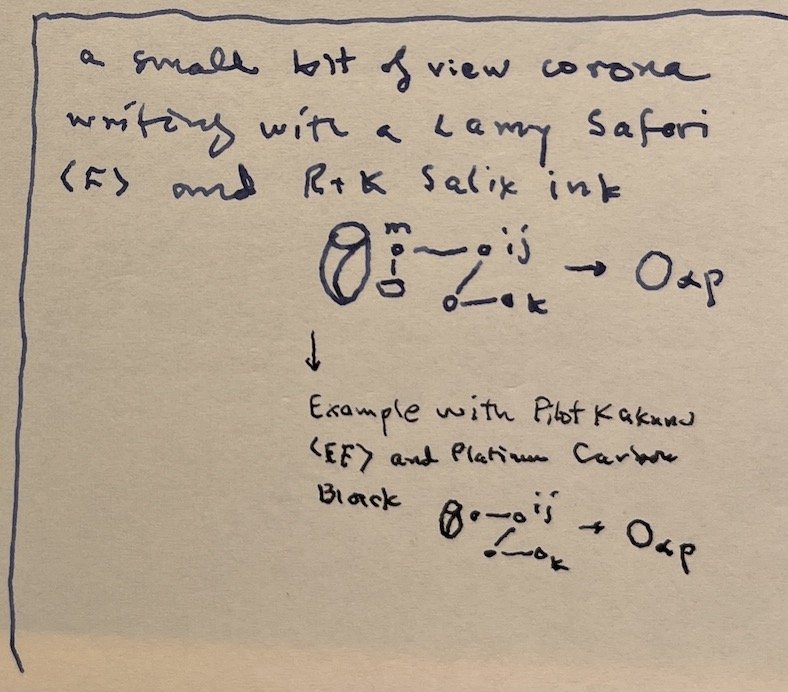 a small bit of view corona
writing with a Lamy Safari
<F> and R+K Salix ink
m
ij → Oαβ
k
↓
Example with Pilot Kakuno
<EF> and Platinum Carbon
Black
ij → Oαβ
k